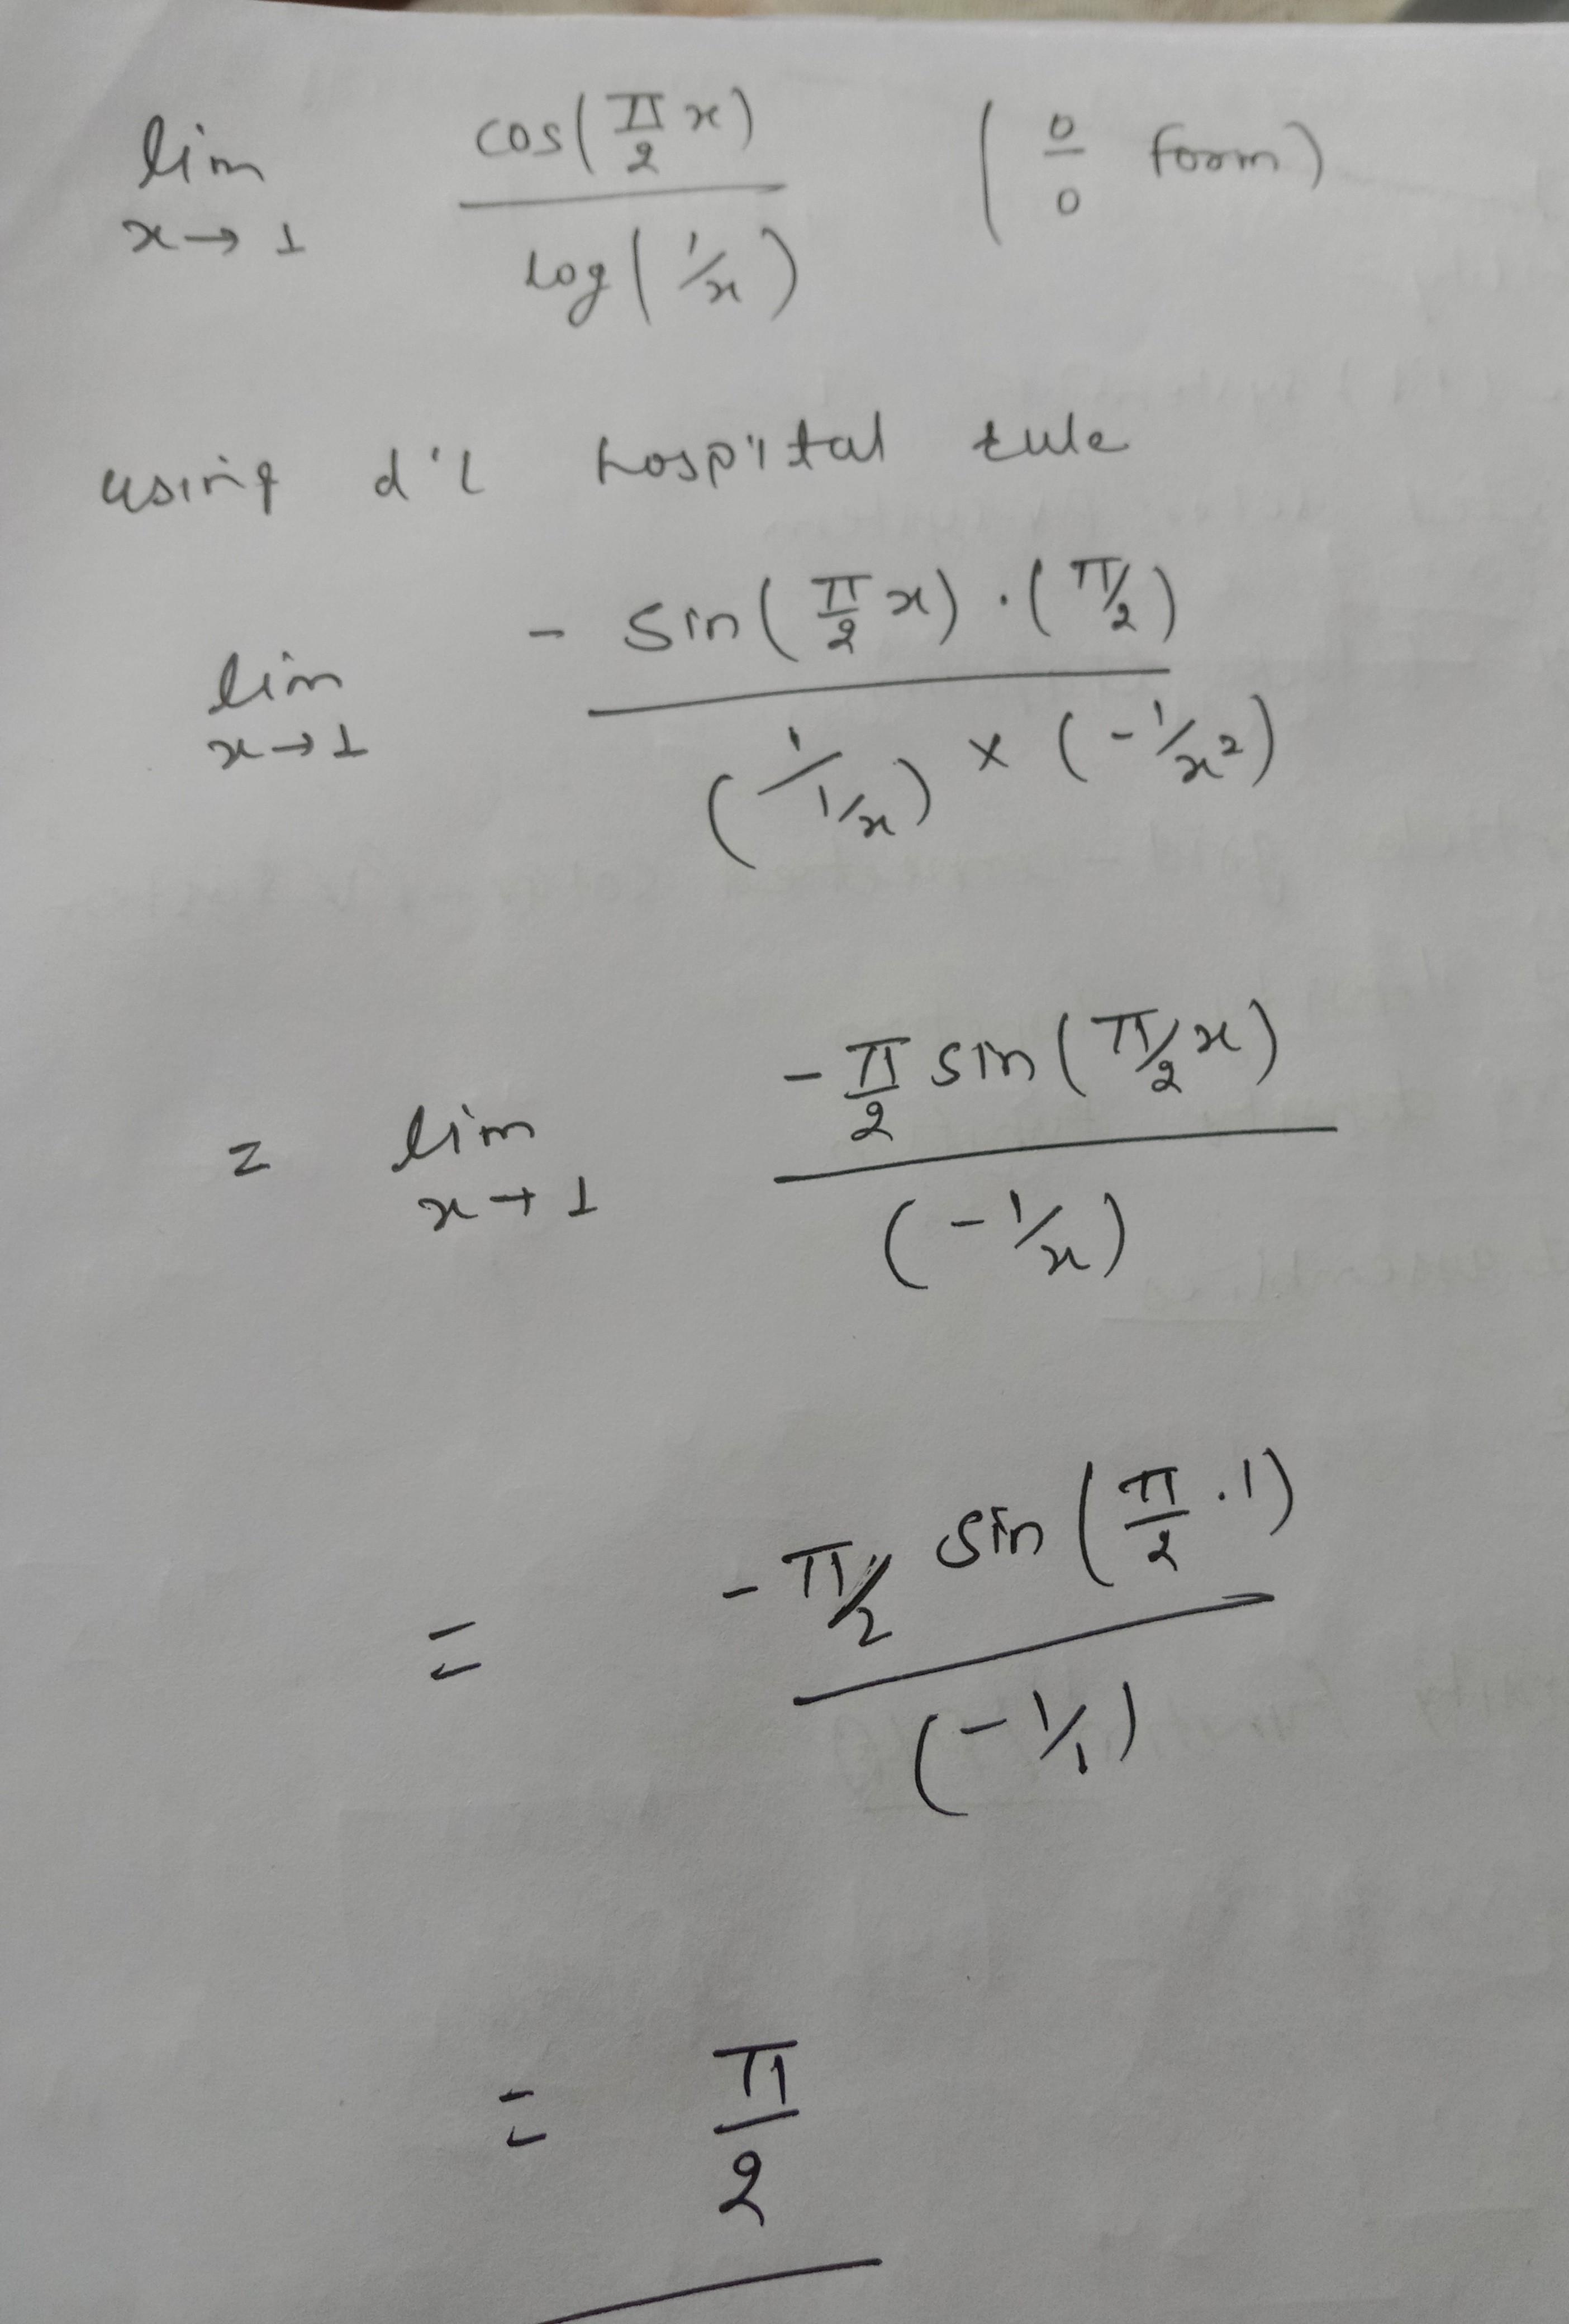 lim x→1 cos(π/2 x) / log(1/x) (0/0 form)
using d'l hospital rule
lim x→1 - sin(π/2 x) · (π/2) / (1/1/x) × (-1/x²)
= lim x→1 -π/2 sin(π/2 x) / (-1/x)
= -π/2 sin(π/2 · 1) / (-1/1)
= π/2